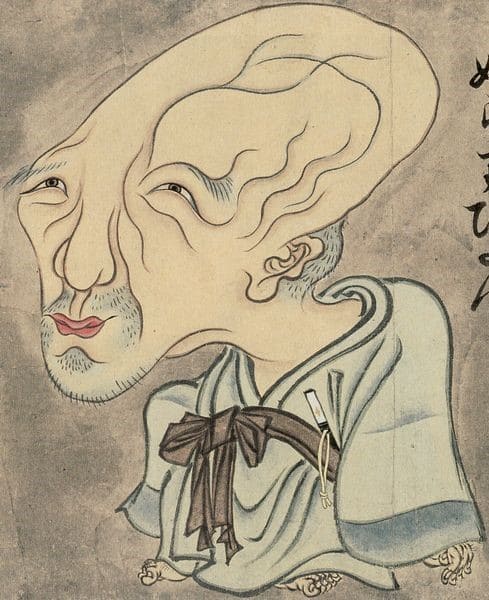 ぬらりひよん